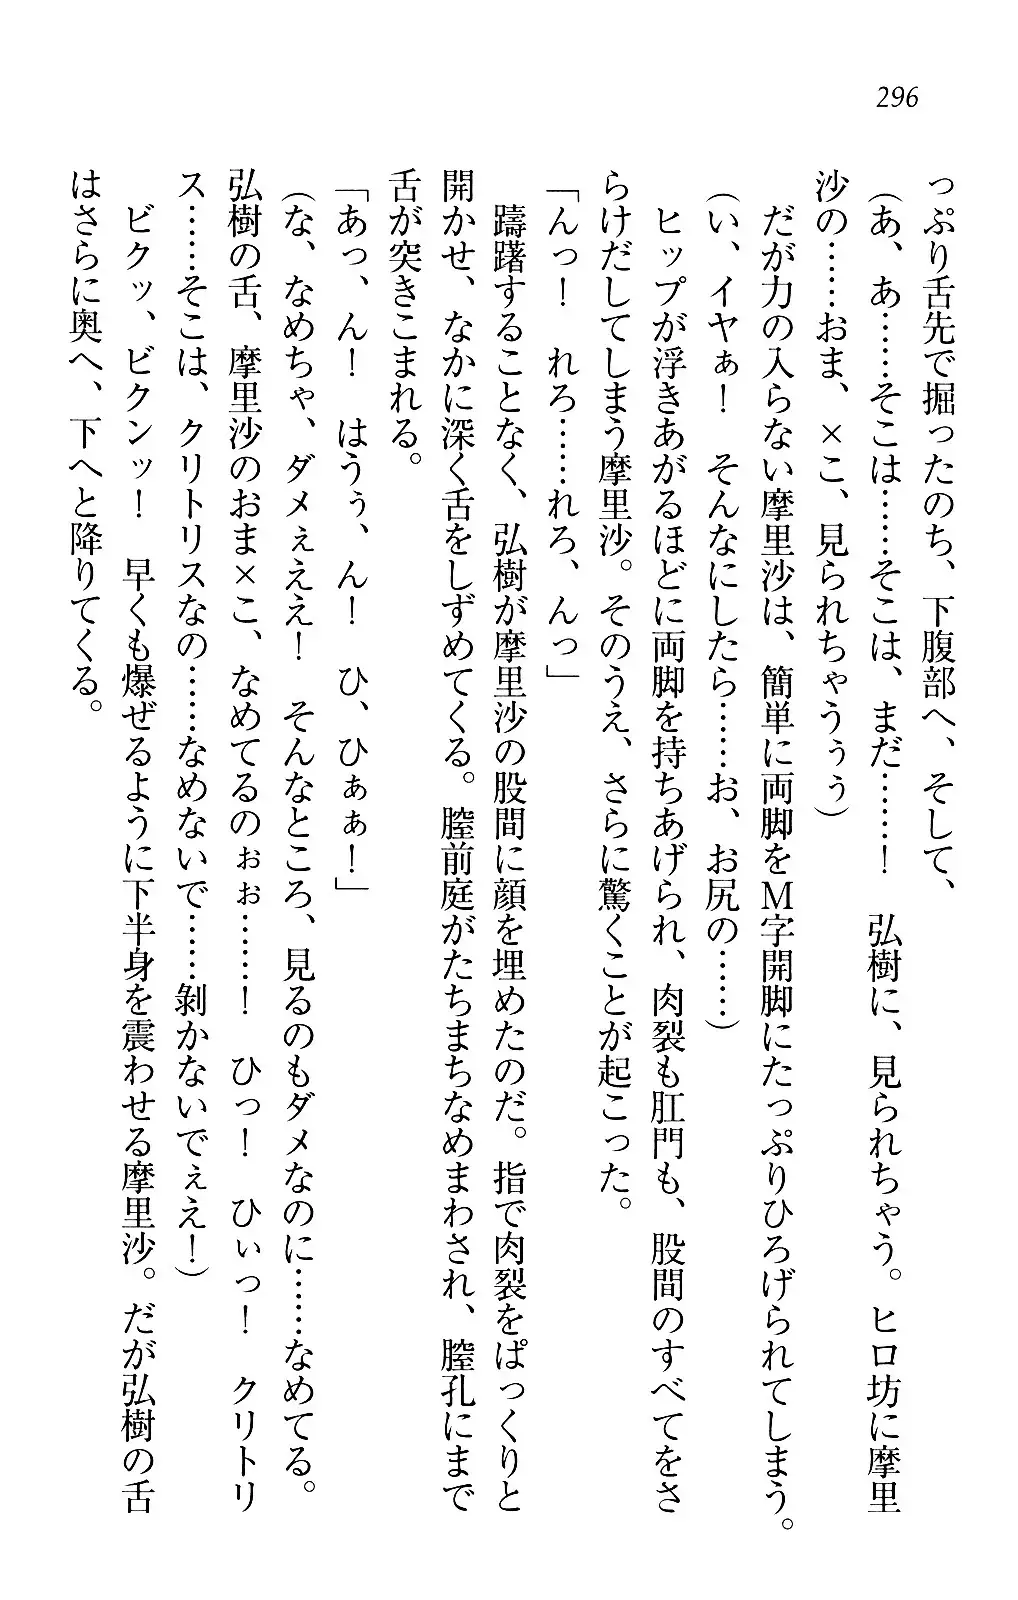 296
っぷり舌先で掘ったのち、下腹部へ、そして、
（あ、あ……そこは……そこは、まだ……！　弘樹に、見られちゃう。ヒロ坊に摩里
沙の……おま、×こ、見られちゃうぅぅ）
だが力の入らない摩里沙は、簡単に両脚をＭ字開脚にたっぷりひろげられてしまう。
（い、イヤぁ！　そんなにしたら……お、お尻の……）
ヒップが浮きあがるほどに両脚を持ちあげられ、肉裂も肛門も、股間のすべてをさ
らけだしてしまう摩里沙。そのうえ、さらに驚くことが起こった。
「んっ！　れろ……れろ、んっ」
躊躇することなく、弘樹が摩里沙の股間に顔を埋めたのだ。指で肉裂をぱっくりと
開かせ、なかに深く舌をしずめてくる。膣前庭がたちまちなめまわされ、膣孔にまで
舌が突きこまれる。
「あっ、ん！　はうぅ、ん！　ひ、ひぁぁ！」
（な、なめちゃ、ダメぇええ！　そんなところ、見るのもダメなのに……なめてる。
弘樹の舌、摩里沙のおま×こ、なめてるのぉぉ……！　ひっ！　ひぃっ！　クリトリ
ス……そこは、クリトリスなの……なめないで……剝かないでぇえ！）
ビクッ、ビクンッ！　早くも爆ぜるように下半身を震わせる摩里沙。だが弘樹の舌
はさらに奥へ、下へと降りてくる。